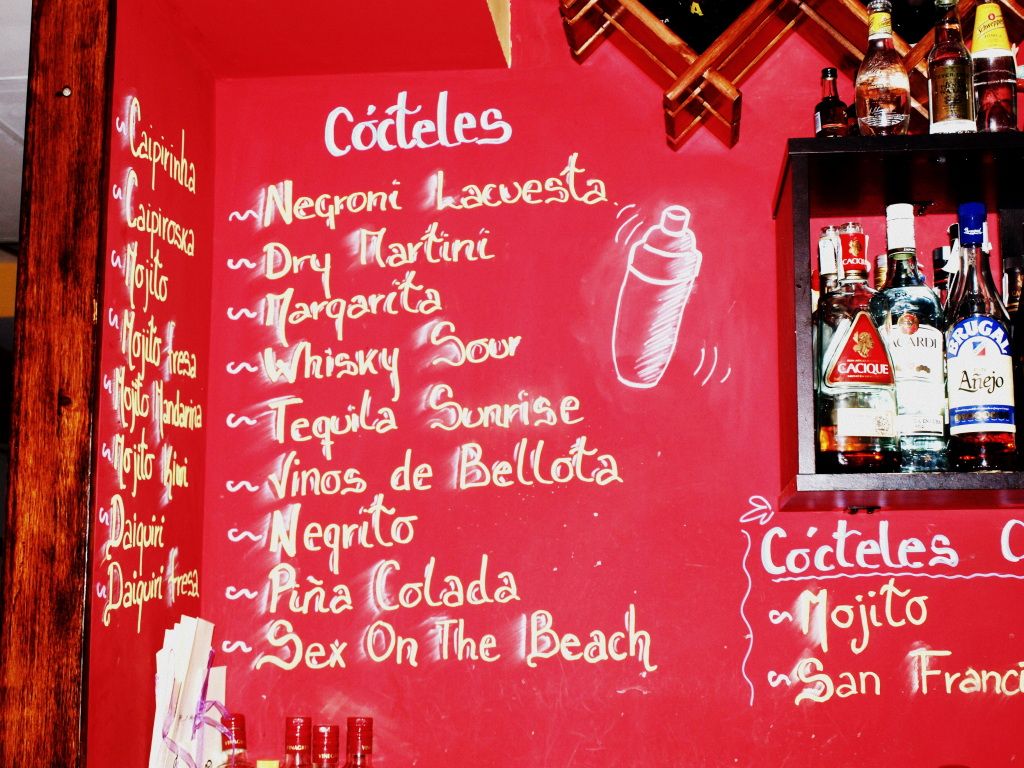 Caipirinha
Caipiroska
Mojito
Mojito fresa
Mojito Mandarina
Mojito Kiwi
Daiquiri
Daiquiri fresa
Cócteles
Negroni Lacuesta
Dry Martini
Margarita
Whisky Sour
Tequila Sunrise
Vinos de Bellota
Negrito
Piña Colada
Sex On The Beach
Cócteles
Mojito
San Franci
CACIQUE
CACIQUE
ACARDI
BRUGAL
Añejo
Schweppes
VINAGRE